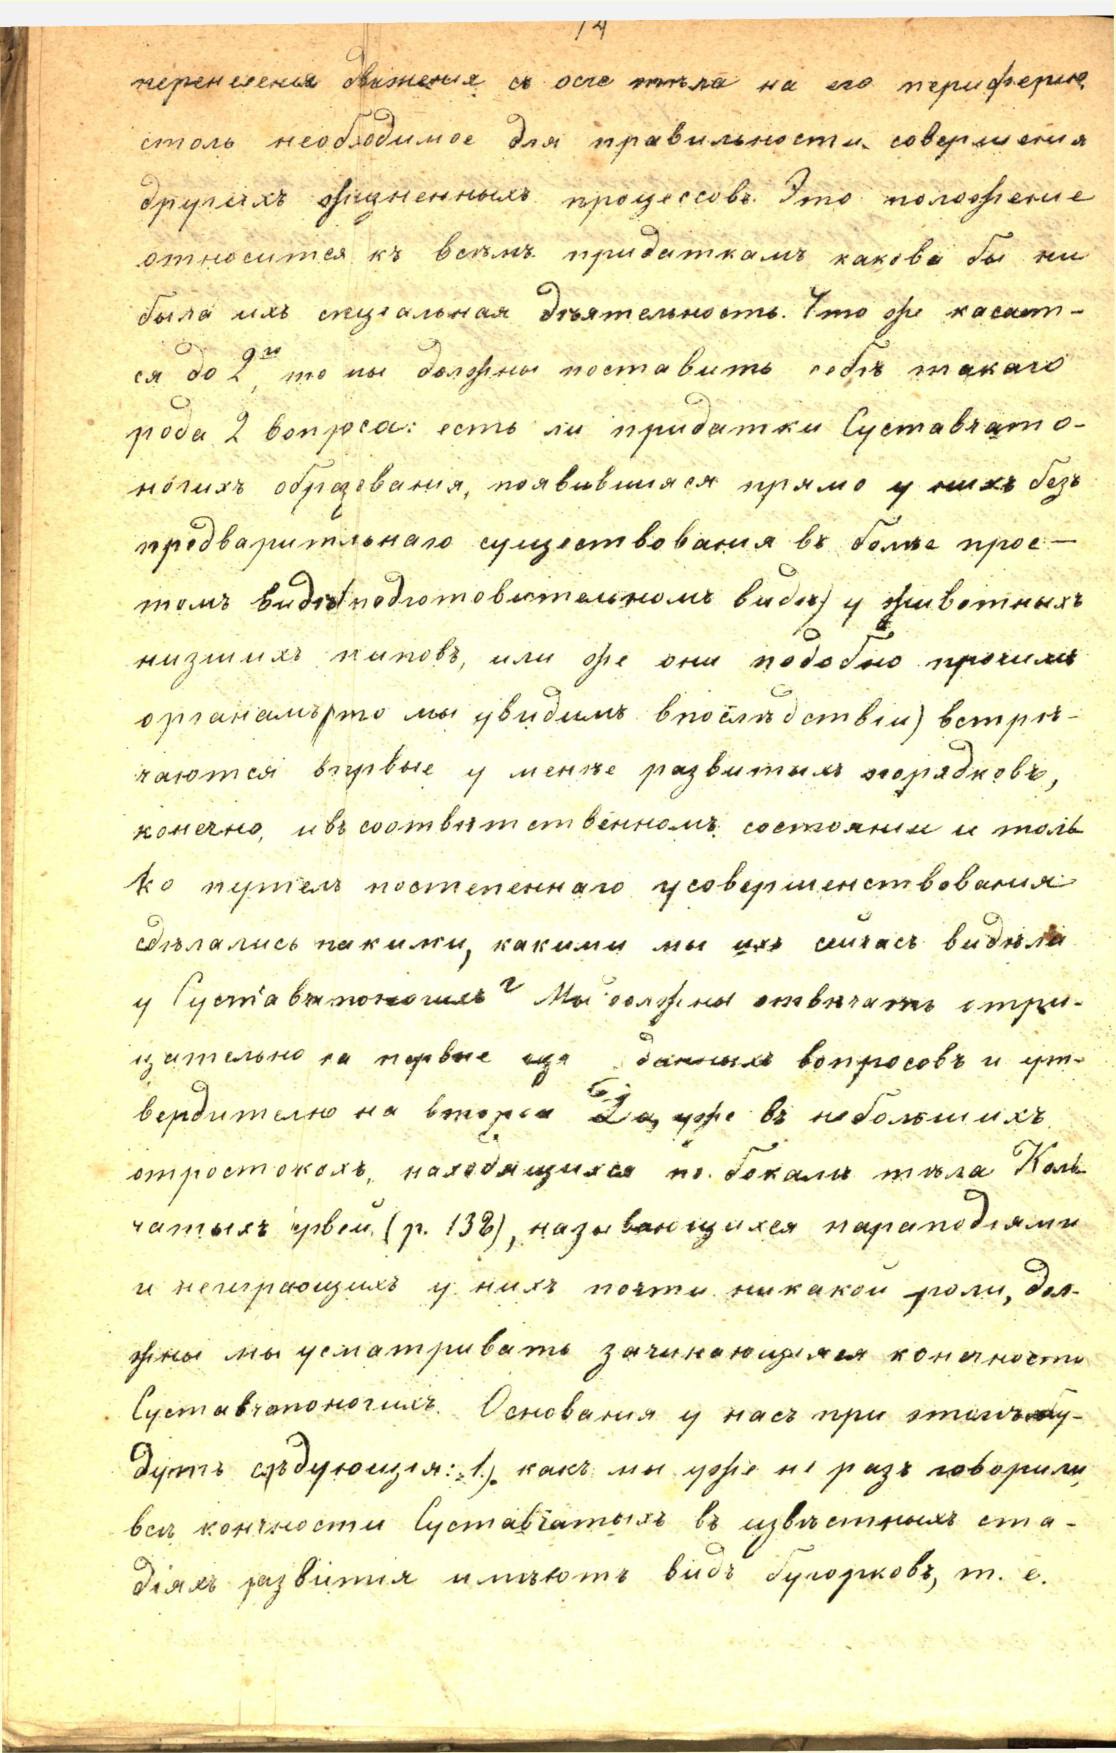 14
перенесенія движенія съ оси тѣла на его периферію,
столь необходимое для правильности совершенія
другихъ жизненныхъ процессовъ. Это положеніе
относится къ всѣмъ придаткамъ какова бы ни
была ихъ спеціальная дѣятельность. Что же касает-
ся до 2го, то мы должны поставить себѣ такаго
рода 2 вопроса: есть ли придатки Суставчато-
ногихъ образованія, появившіяся прямо у нихъ безъ
предварительнаго существованія въ болѣе прос-
томъ видѣ (подготовительномъ видѣ) у животныхъ
низшихъ типовъ, или же они подобно прочимъ
органамъ (что мы увидимъ впослѣдствіи) встрѣ-
чаются впервые у менѣе развитыхъ порядковъ,
конечно, и въ соотвѣтственномъ состояніи и толь
ко путемъ постепеннаго усовершенствованія
сдѣлались такими, какими мы ихъ сейчасъ видѣли
у Суставчатоногихъ? Мы должны отвѣчать отри-
цательно на первые изъ данныхъ вопросовъ и ут-
вердительно на второй уже въ небольшихъ
отросткахъ, находящихся по бокамъ тѣла Коль
чатыхъ червей (р. 138), называющихся параподіями
и неиграющихъ у нихъ почти никакой роли, дол-
жны мы усматривать зачинающіяся конечности
Суставчатоногихъ. Основанія у насъ при этомъ бу-
дутъ слѣдующія: 1) какъ мы уже не разъ говорили,
всѣ конечности Суставчатыхъ въ извѣстныхъ ста-
діяхъ развитія имѣютъ видъ бугорковъ, т. е.